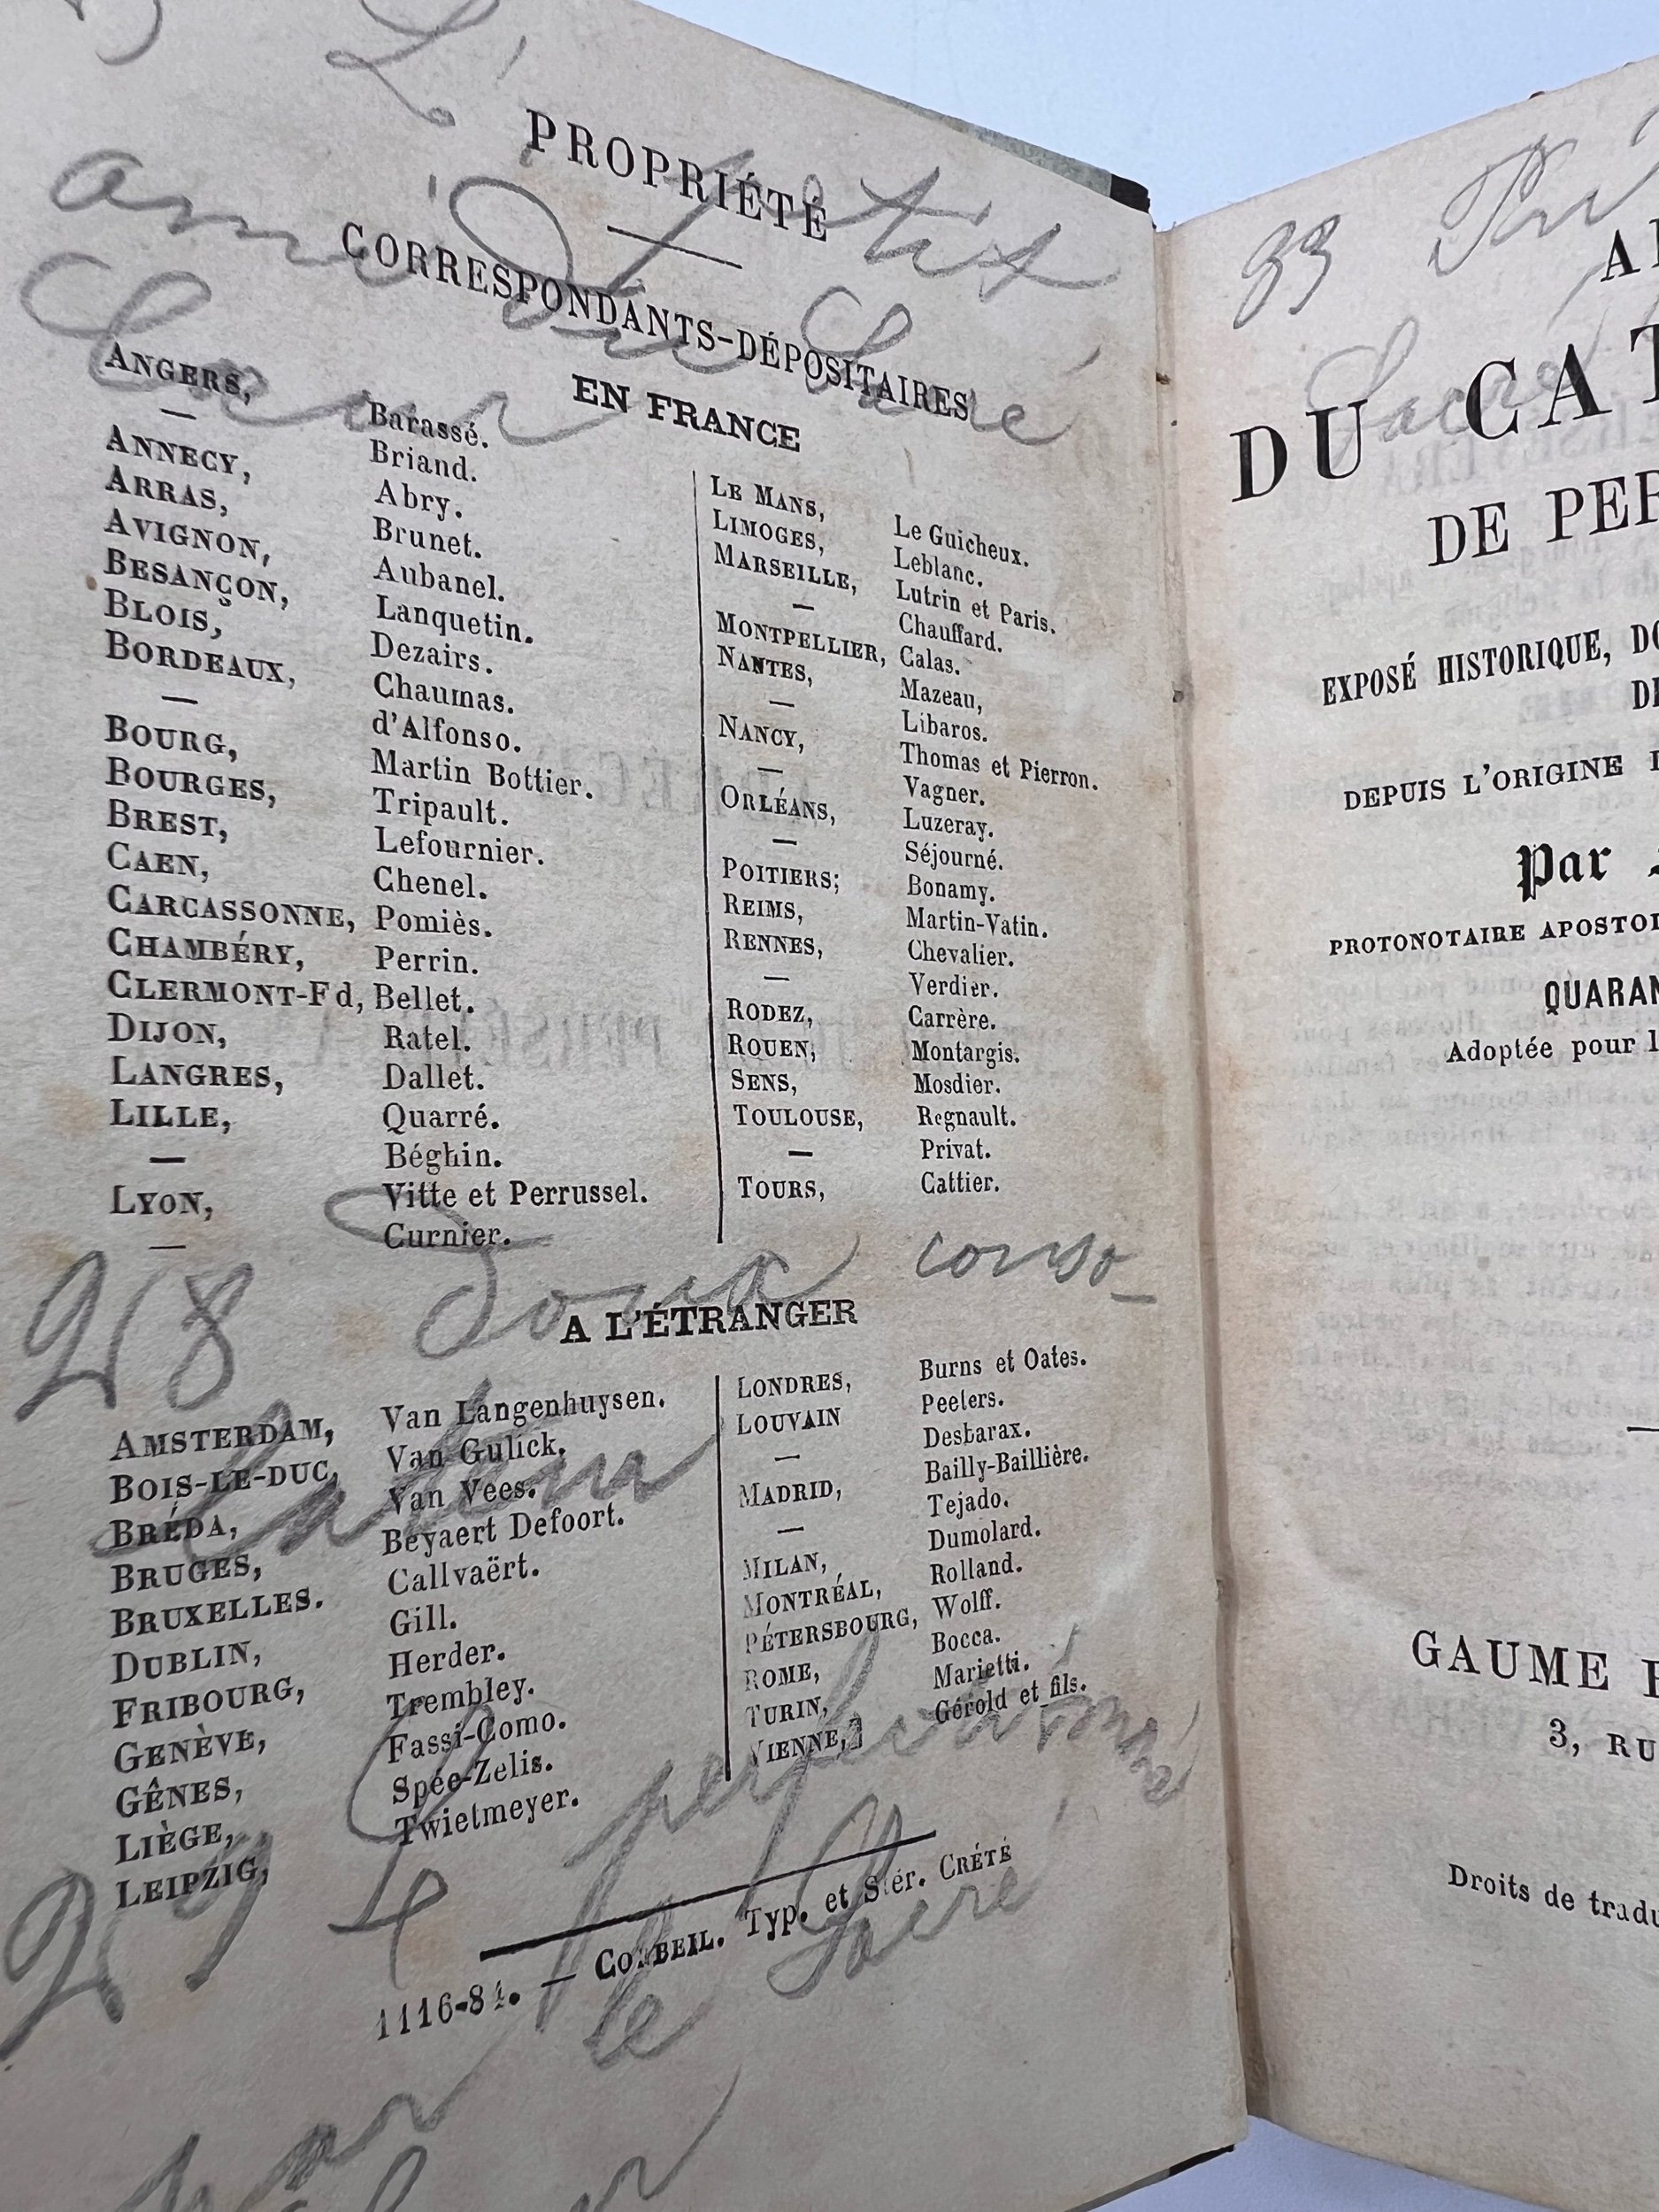 L'
PROPRIÉTÉ
CORRESPONDANTS-DÉPOSITAIRES
EN FRANCE
ANGERS, Barassé.
— Briand.
ANNECY, Abry.
ARRAS, Brunet.
AVIGNON, Aubanel.
BESANÇON, Lanquetin.
BLOIS, Dezairs.
BORDEAUX, Chaumas.
— d'Alfonso.
BOURG, Martin Bottier.
BOURGES, Tripault.
BREST, Lefournier.
CAEN, Chenel.
CARCASSONNE, Pomiès.
CHAMBÉRY, Perrin.
CLERMONT-Fd, Bellet.
DIJON, Ratel.
LANGRES, Dallet.
LILLE, Quarré.
— Béghin.
LYON, Vitte et Perrussel.
— Curnier.
LE MANS, Le Guicheux.
LIMOGES, Leblanc.
MARSEILLE, Lutrin et Paris.
— Chauffard.
MONTPELLIER, Calas.
NANTES, Mazeau,
— Libaros.
NANCY, Thomas et Pierron.
— Vagner.
ORLÉANS, Luzeray.
— Séjourné.
POITIERS; Bonamy.
REIMS, Martin-Vatin.
RENNES, Chevalier.
— Verdier.
RODEZ, Carrère.
ROUEN, Montargis.
SENS, Mosdier.
TOULOUSE, Regnault.
— Privat.
TOURS, Cattier.
28 Doux conso-
A L'ÉTRANGER
AMSTERDAM, Van Langenhuysen.
BOIS-LE-DUC, Van Gulick.
BRÉDA, Van Vees.
BRUGES, Beyaert Defoort.
BRUXELLES. Callvaërt.
DUBLIN, Gill.
FRIBOURG, Herder.
GENÈVE, Trembley.
GÊNES, Fassi-Como.
LIÈGE, Spée-Zelis.
LEIPZIG, Twietmeyer.
LONDRES, Burns et Oates.
LOUVAIN Peelers.
— Desbarax.
MADRID, Bailly-Baillière.
— Tejado.
MILAN, Dumolard.
MONTRÉAL, Rolland.
PÉTERSBOURG, Wolff.
ROME, Bocca.
TURIN, Marietti.
VIENNE, Gérold et fils.
29
le Sacré
1116-84. — CORBEIL. Typ. et Stér. CRÉTÉ
33
Sacré
DU CAT
DE PER
EXPOSÉ HISTORIQUE, DO
DE
DEPUIS L'ORIGINE
Par
PROTONOTAIRE APOSTOL
QUARAN
Adoptée pour l
GAUME
3, RU
Droits de tradu